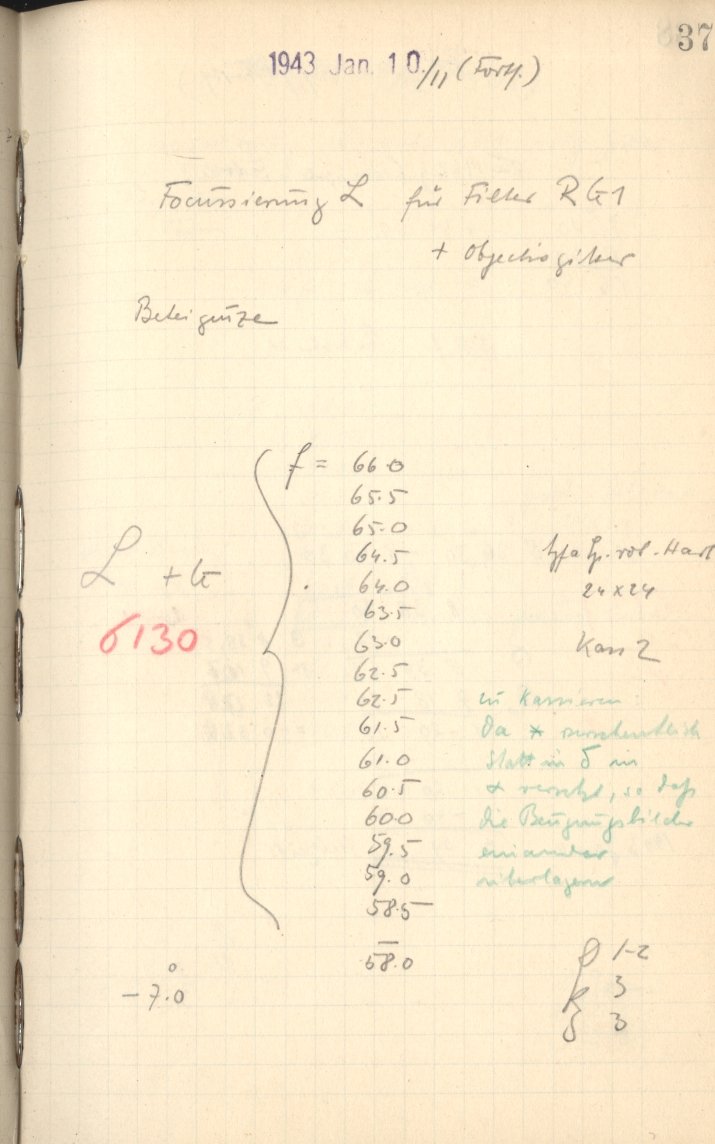 37
1943 Jan. 10./11 (Forts.)
Focussierung L für Filter RG1
+ Objectivgitter
Beteigeuze
f = 66.0
65.5
65.0
64.5
64.0
63.5
63.0
62.5
62.5
61.5
61.0
60.5
60.0
59.5
59.0
58.5
58.0
L + G
6130
Agfa Sp. rot. Hart
24x24
Kass 2
zu kassieren
Da * versehentlich
statt in δ in
α versetzt, so daß
die Beugungsbilder
einander
überlagern
-7.0°
1-2
3
3